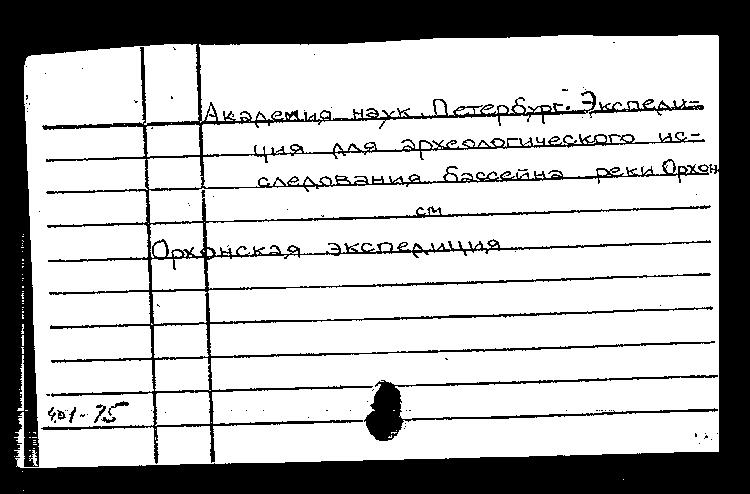 Академия наук, Петербург. Экспеди-
ция для археологического ис-
следования бассейна реки Орхон
см
Орхонская экспедиция
401-75